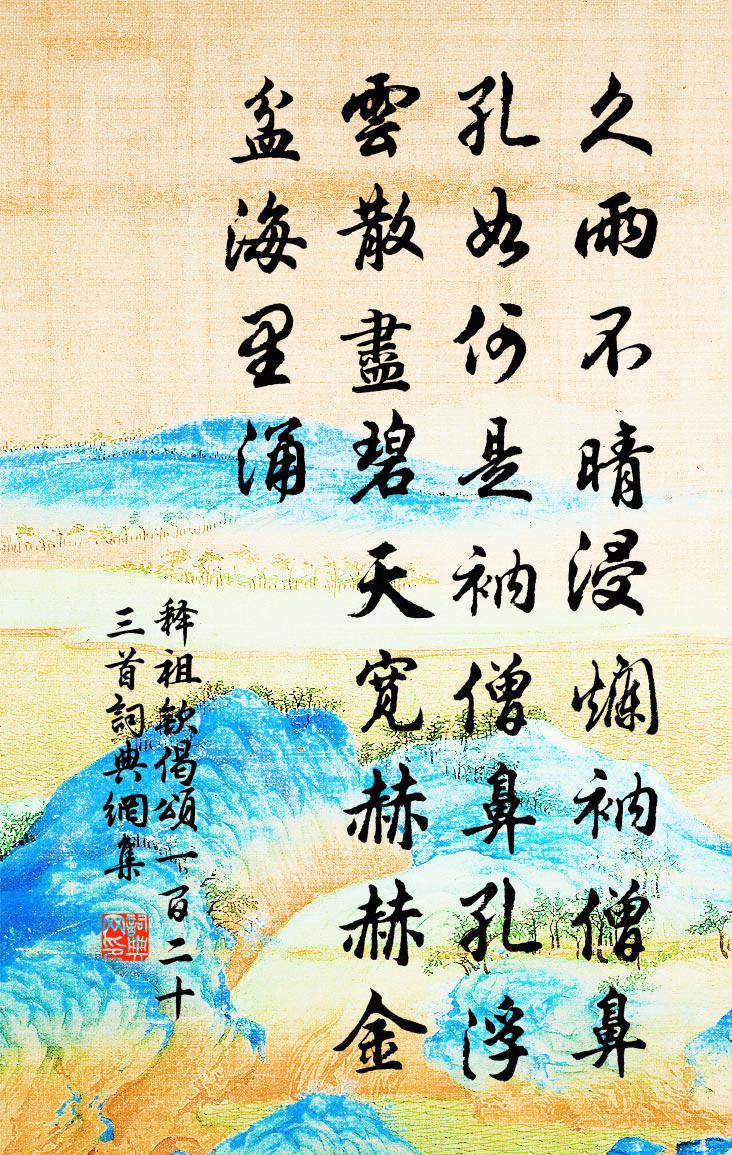 久雨不晴浸爛衲僧鼻
孔如何是衲僧鼻孔浮
雲散盡碧天寬赫赫金
盆海里涌
释祖钦偈頌一百二十
三首詞典網集